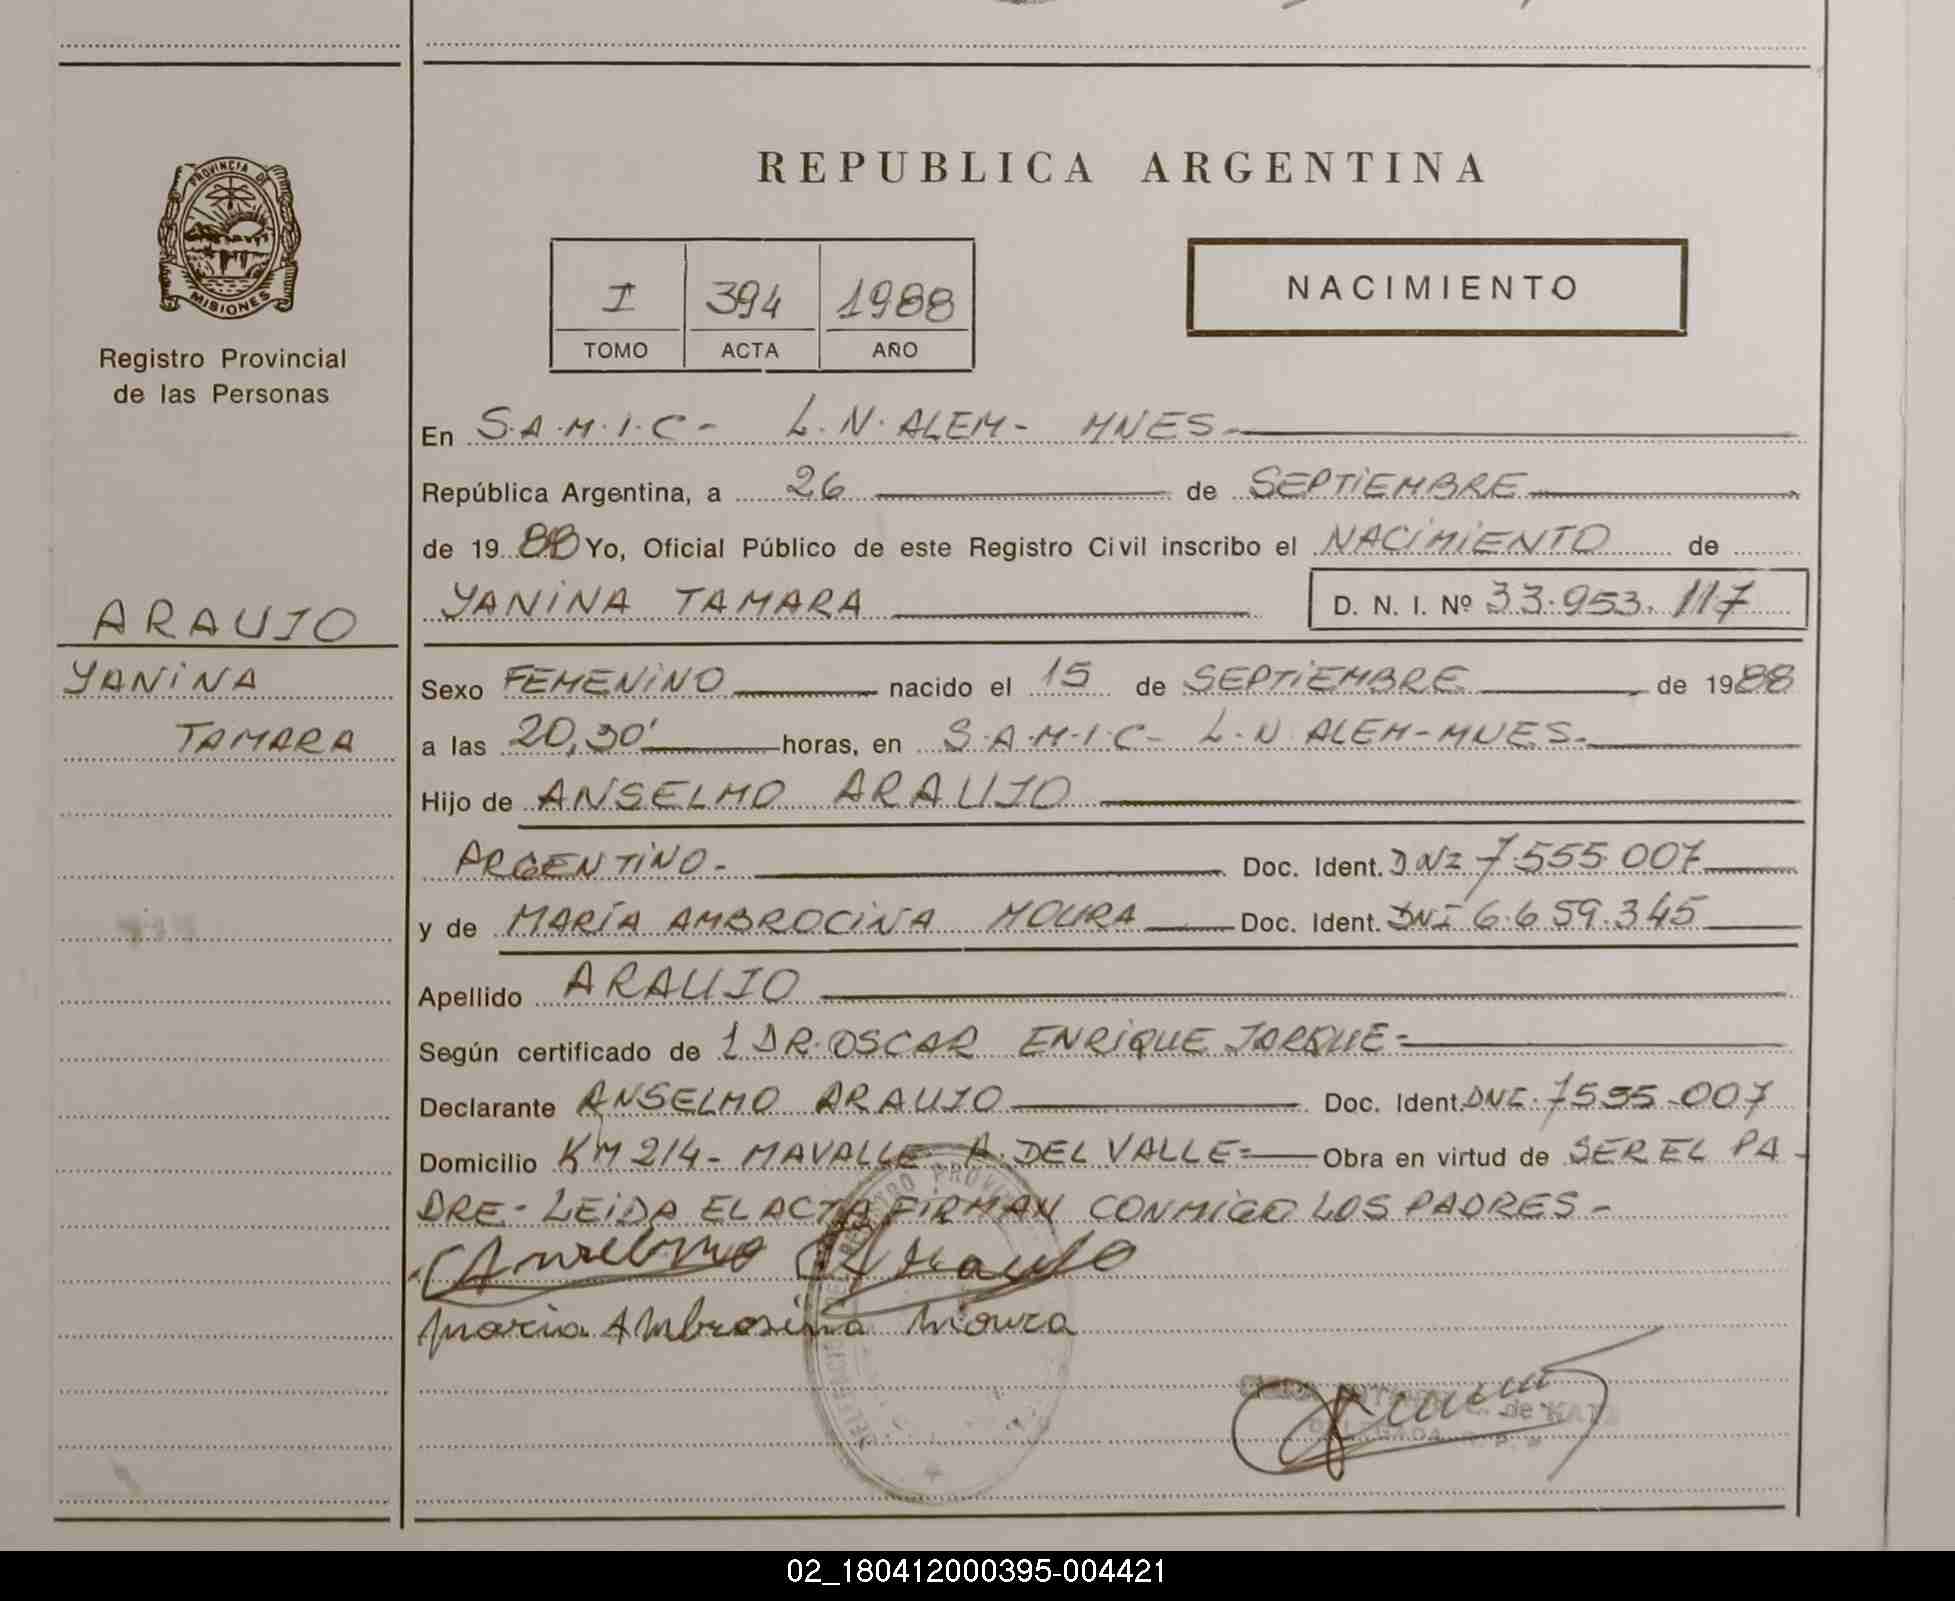 PROVINCIA DE
MISIONES
Registro Provincial
de las Personas
ARAUJO
YANINA
TAMARA
REPUBLICA ARGENTINA
I 394 1988
TOMO ACTA AÑO
NACIMIENTO
En S.A.M.I.C- L.N.ALEM- MNES-
República Argentina, a 26 de SEPTIEMBRE
de 19 88 Yo, Oficial Público de este Registro Civil inscribo el NACIMIENTO de
YANINA TAMARA D. N. I. Nº 33.953.117
Sexo FEMENINO nacido el 15 de SEPTIEMBRE de 1988
a las 20,30' horas, en S.A.M.I.C- L.N ALEM-MNES-
Hijo de ANSELMO ARAUJO
ARGENTINO- Doc. Ident. DNI 7.555.007
y de MARÍA AMBROCINA MOURA Doc. Ident. DNI 6.659.345
Apellido ARAUJO
Según certificado de 1 DR. OSCAR ENRIQUE JARQUE-
Declarante ANSELMO ARAUJO Doc. Ident. DNI. 7555.007
Domicilio KM 214- MAVALLE A. DEL VALLE= Obra en virtud de SER EL PA-
DRE- LEIDA EL ACTA FIRMAN CONMIGO LOS PADRES-
Anselmo Araujo
Maria Ambrosina Moura
REGISTRO PROVIN
de KATZ
DELEGADA R. P. P
02_180412000395-004421